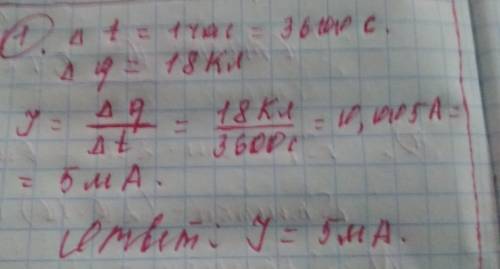 1. Δ t = 1 час = 3600 с.
Δ q = 18 Кл
I = Δq / Δt = 18 Кл / 3600 с = 0,005 А =
= 5 мА.
Ответ: I = 5 мА.